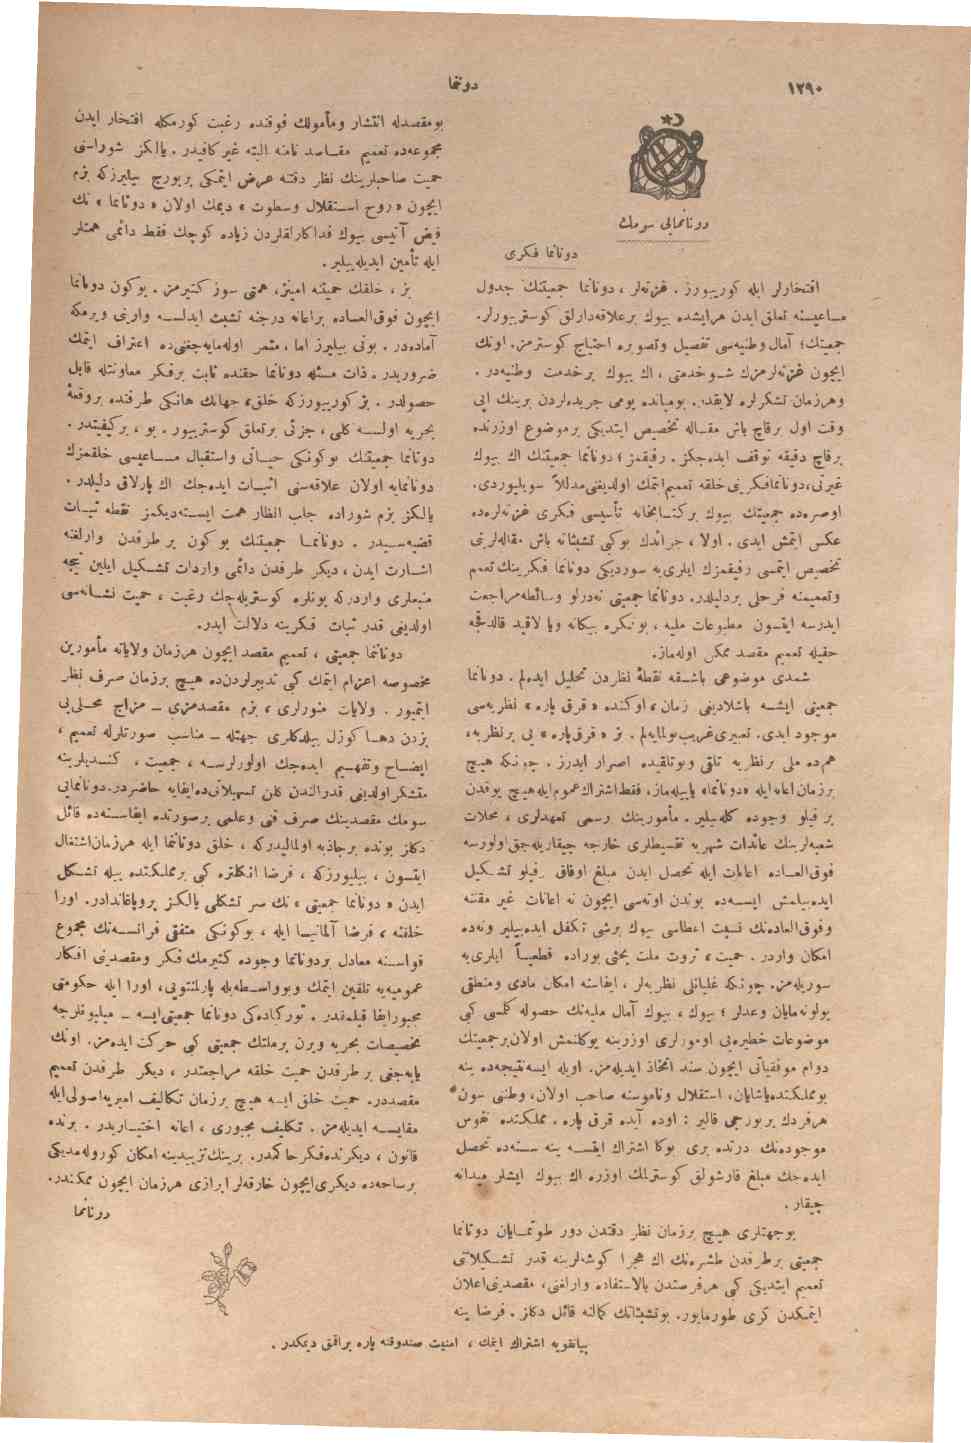 ١٢٩٠
دوننما
دونانمالی سومك
دونانما فكری
افتخارلر ایله كورییورز . غزته‌لر ، دونانما جمعیتنك جدول
مساعیسنه تعلق ایدن هرایشده بیوك برعلاقه‌دارلق كوستریيورلر.
جمعیتك ؛ آمال وطنیه‌سی تفصیل وتصویره احتیاج كوسترمز. اونك
ایچون غزته‌لرمزك شو خدمتی ، اك بیوك برخدمت وطنیه‌در .
وهرزمان تشكرلره لایقدر. بومیانده یومی جریده‌لردن برینك ایی
وقت اول برقاچ باش مقاله تخصیص ایتدیكی برموضوع اوزرنده
برقاچ دقیقه توقف ایده‌جكز. رفیقمز ؛ دونانما جمعیتنك اك بیوك
غیرتی،دونانمافكرینی خلقه تعمیم‌ایتمك اولدیغنی‌مدللاً سویلیوردی.
اوصره‌ده جمعیتك بیوك بركتبخانه تأسیسی فكری غزته‌لره‌ده
عكس ایتمش ایدی . اولا ، جرائدك بوكبی تشبثاته باش مقاله‌لرینی
تخصیص ایتمسی رفیقمزك ایلری‌یه سوردیكی دونانما فكرینك تعمم
وتعمیمنه فرحلی بردلیلدر. دونانما جمعیتی نه‌درلو وسائطه‌مراجعت
ایدرسه ایتسون مطبوعات ملیه ، بونكره بیكانه ویا لاقید قالدقجه
حقیله تعمیم مقصد ممكن اوله‌ماز.
شمدی موضوعی باشقه نقطۀ نظردن تحلیل ایده‌لم . دونانما
جمعیتی ایشه باشلادیغی زمان ، اوكنده « قرق پاره » نظریه‌سی
موجود ایدی. تعبیری‌غریب بولمایه‌لم . بز « قرق‌پاره » یی برنظریه ،
هم‌ده ملی برنظریه تلقی وبوتلقیده اصرار ایدرز . چونكه هیچ
برزمان اعانه‌ایله «دونانما» یاپیله‌ماز، فقط‌اشتراك‌عموم‌ایله‌هیچ یوقدن
بر فیلو وجوده كله‌بیلیر . مأمورینك رسمی تعهدلری ، محلات
شعبه‌لرینك عائدات شهریه تقسیطلری خارجه چیقاریله‌جق‌اولورسه
فوق‌العاده اعانات ایله تحصل ایدن مبلغ اوفاق برفیلو تشكیل
ایده‌بیلمش ایسه‌ده بوندن اوته‌سی ایچون نه اعانات غیر مقننه
وفوق‌العاده‌نك نسبت اعطاسی بیوك برشی تكفل ایده‌بیلیر ونه‌ده
امكان واردر . حمیت ، ثروت ملت بحثی بوراده قطعیاً ایلری‌یه
سوریله‌مز. چونكه غلیانلی نظریه‌لر ، ایفاسنه امكان مادی ومنطقی
بولونه‌مایان وعدلر ؛ بیوك ، بیوك آمال ملیه‌نك حصوله كلمسی كبی
موضوعات خطیره‌یی اومورلری اوزرینه یوكلنمش اولان‌برجمعیتك
دوام موفقیاتی ایچون سند اتخاذ ایدیله‌مز. اویله ایسه‌نتیجه‌ده ینه
بومملكتده‌یاشایان، استقلال وناموسنه صاحب اولان، وطنی سون
هرفردك بربورجی قالیر : اوده آیده قرق پاره . مملكتده نفوس
موجوده‌نك درتده بری بوكا اشتراك ایتسه ینه سنه‌ده تحصل
ایده‌جك مبلغ قارشولق كوسترلمك اوزره اك بیوك ایشلر میدانه
چیقار .
بوجهتلری هیچ برزمان نظر دقتدن دور طوتمایان دونانما
جمعیتی برطرفدن طشره‌نك اك هجرا كوشه‌لرینه قدر تشكیلاتی
تعمیم ایتدیكی كبی هرفرصتدن بالاستفاده وارلغنی، مقصدینی‌اعلان
ایتمكدن كری طورمایور. بوتشبثاتك كمالنه قائل دكلز . فرضا ینه
بومقصدله انتشار ومأمولك فوقنده رغبت كورمكله افتخار ایدن
مجموعه‌ده تعمیم مقاصد نامنه البته غیركافیدر . یالكز شوراسنی
حمیت صاحبلرینك نظر دقتنه عرض ایتمكی بربورج بیلیرزكه بزم
ایچون «روح استقلال وسطوت » دیمك اولان « دونانما » نك
فیض آتیسی بیوك فداكارلقلردن زیاده كوچك فقط دائمی همتلر
ایله تأمین ایدیله‌بیلیر .
بز ، خلقك حمیتنه امینز، همتی سوز كتیرمز . بوكون دونانما
ایچون فوق‌العاده براعانه درجنه تشبث ایدلسه وارینی ویرمكه
آماده‌در . بونی بیلیرز اما ، مثمر اوله‌مایه‌جغنی‌ده اعتراف ایتمك
ضروریدر . ذات مسئله دونانما حقنده ثابت برفكر معاونتله قابل
حصولدر . بز كورییورزكه خلق، جهانك هانكی طرفنده بروقعۀ
بحریه اولسه كلی ، جزئی برتعلق كوستریيور . بو ، بركیفیتدر .
دونانما جمعیتنك بوكونكی حیاتی واستقبال مساعیسی خلقمزك
دونانمایه اولان علاقه‌سنی اثبات ایده‌جك اك پارلاق دلیلدر .
یالكز بزم شوراده جلب انظار همت ایسته‌دیكمز نقطه ثبات
قضیه‌سیدر . دونانما جمعیتنك بوكون برطرفدن وارلغنه
اشارت ایدن ، دیكر طرفدن دائمی واردات تشكیل ایلین نیجه
منبعلری واردركه بونلره كوستریله‌جك رغبت ، حمیت نشانه‌سی
اولدیغی قدر ثبات فكرینه دلالت ایدر.
دونانما جمعیتی ، تعمیم مقصد ایچون هرزمان ولایاته مأمورین
مخصوصه اعزام ایتمك كبی تدبیرلردن‌ده هیچ برزمان صرف نظر
ایتمیور . ولایات منورلری ، بزم مقصدمزی — مزاج محلی‌یی
بزدن دها كوزل بیلدكلری جهتله — مناسب صورتلرله تعمیم ،
ایضاح وتفهیم ایده‌جك اولورلرسه ، جمعیت ، كندیلرینه
متشكر اولدیغی قدرالندن كلن تسهیلاتی‌ده‌ایفایه حاضردر.دونانمالی
سومك مقصدینك صرف فنی وعلمی برصورتده ایفاسنه‌ده قائل
دكلز بونده برجاذبه اولمالیدركه ، خلق دونانما ایله هرزمان‌اشتغال
ایتسون ، بیلیورزكه ، فرضا انكلتره كبی برمملكتده بیله تشكل
ایدن « دونانما جمعیتی » نك سر تشكلی یالكز پروپاغاندادر. اورا
خلقنه ، فرضا آلمانیا ایله ، بوكونكی متفقی فرانسه‌نك مجموع
قواسنه معادل بردونانما وجوده كتیرمك فكر ومقصدینی افكار
عمومیه‌یه تلقین ایتمك وبوواسطه‌یله پارلمنتویی ، اورا ایله حكومتی
مجبورایفا قیلمقدر . توركیاده‌كی دونانما جمعیتی‌ایسه — میلیونلرجه
مخصصات بحریه ویرن برملتك جمعیتی كبی حركت ایده‌مز. اونك
یاپه‌جغی برطرفدن حمیت خلقه مراجعتدر ، دیكر طرفدن تعمیم
مقصددر. حمیت خلق ایسه هیچ برزمان تكالیف امیریه‌اصولی‌ایله
مقایسه ایدیله‌مز . تكلیف مجبوری ، اعانه اختیاریدر . برنده
قانون ، دیكرنده‌فكرحاكمدر. برینك‌تزییدینه امكان كوروله‌مدیكی
برساحه‌ده دیكری‌ایچون خارقه‌لر ابرازی هرزمان ایچون ممكندر.
دونانما
پیانغویه اشتراك ایتمك ، امنیت صندوقنه پاره براقمق دیمكدر .